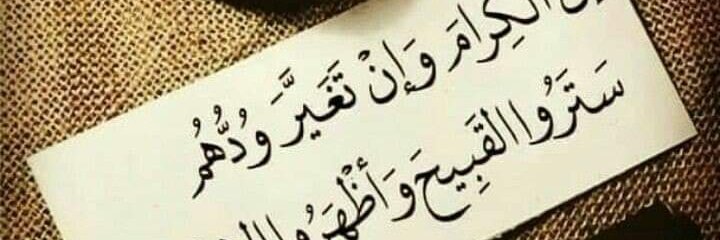 الكِرامَ وَإنْ تَغَيَّرَ وُدُّهُمُ
سَتَرُوا القَبِيحَ وَأظْهَرُوا